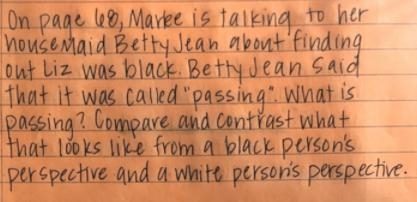 On page 68, Marlee is talking to her
housemaid Betty Jean about finding
out Liz was black. Betty Jean said
that it was called "passing". What is
passing? Compare and contrast what
that looks like from a black person's
perspective and a white person's perspective.